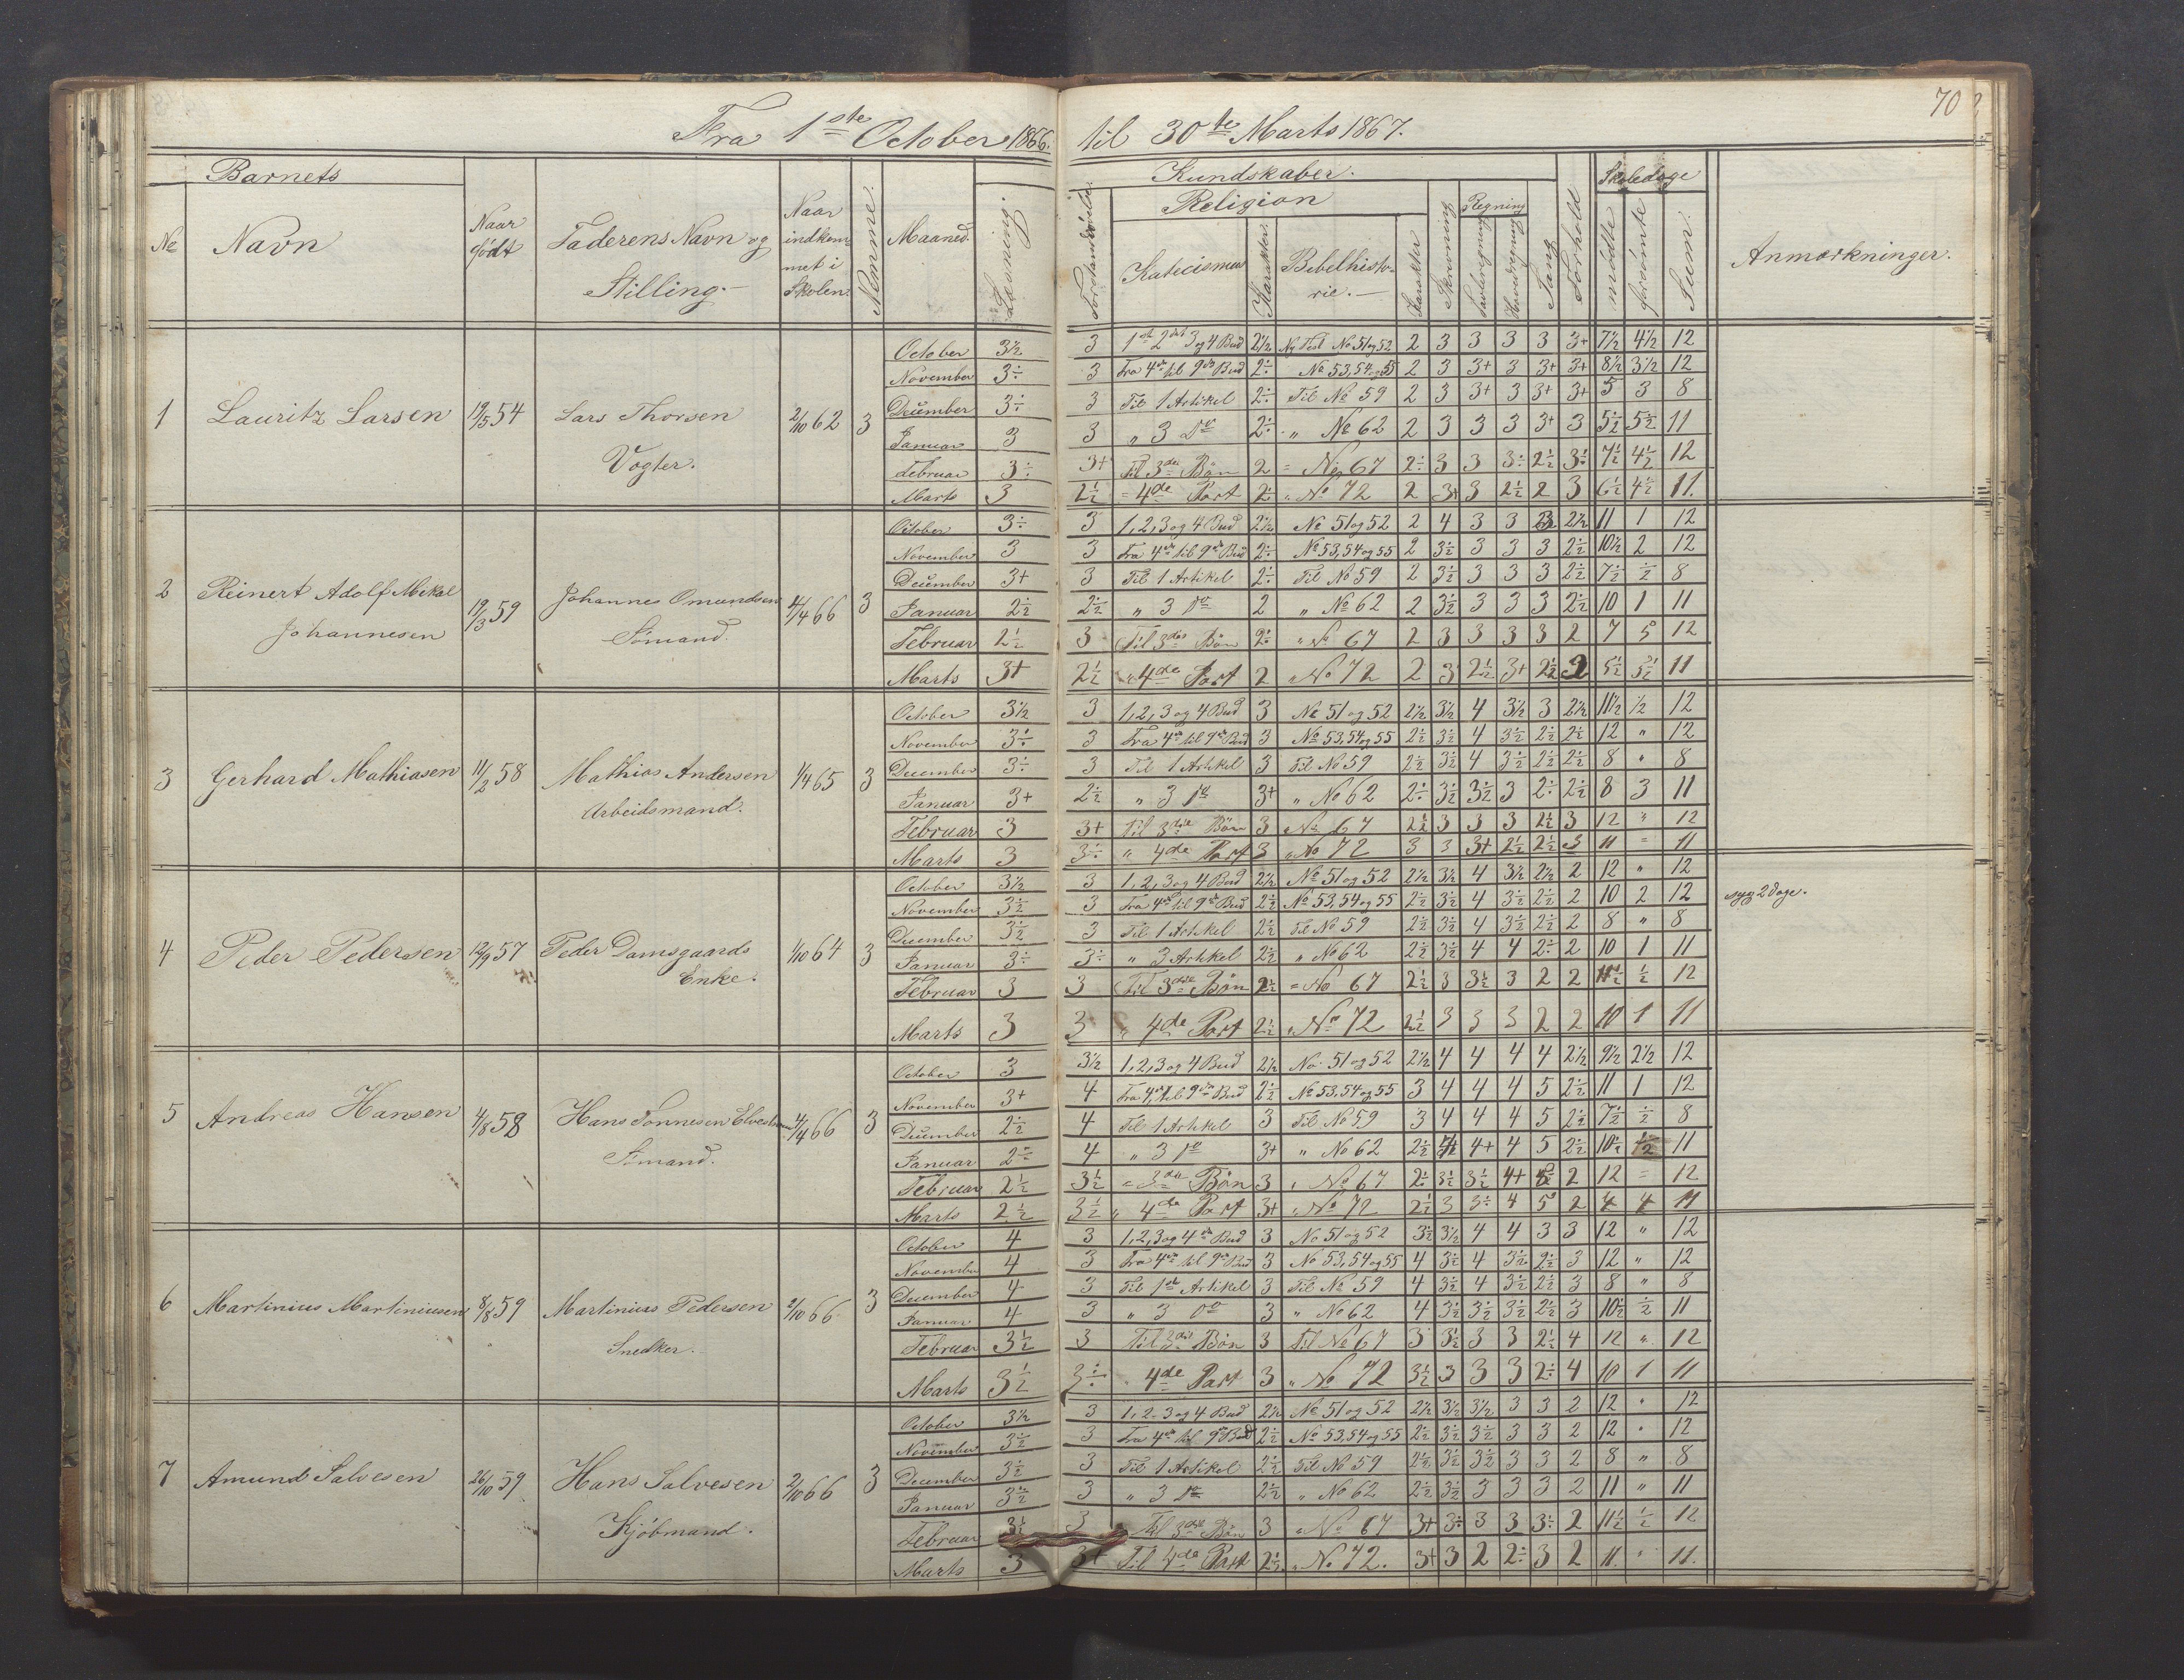 70
Fra 1ste October 1866. til 30te Marts 1867.
Barnets
Kundskaber.
Skoledage
№ Navn
Naar födt
Faderens Navn og Stilling.
Naar indkommet i Skolen.
Maaned.
Læsning.
Religion
Katecismus
Karakter
Bibelhistorie.
Karakter
Skrivning
Regning
Tavleregning
Hovedregning
Sang
Forhold
mødte
forsömte
Sum.
Anmærkninger.
1 Lauritz Larsen 19/5 54 Lars Thorsen Vogter. 2/10 62 3
October 3½ 3 1st 2det 3 og 4 Bud 2½ Ny Test No 51 og 52 2 3 3 3 3 3+ 7½ 4½ 12
November 3÷ 3 Fra 4de til 9de Bud 2÷ № 53,54 og 55 2 3 3+ 3 3+ 3+ 8½ 3½ 12
December 3÷ 3 Til 1 Artikel 2÷ Til No 59 2 3 3+ 3 3+ 3+ 5 3 8
Januar 3 3 " 3 Do 2÷ " № 62 2 3 3 3 3+ 3 5½ 5½ 11
Februar 3÷ 3+ Til 3die Bön 2 = No 67 2÷ 3 3 3÷ 2½ 3÷ 7½ 4½ 12
Marts 3 2½ = 4de Part 2÷ " No 72 2 3+ 3 2½ 2 3 6½ 4½ 11.
2 Reinert Adolf Mikal Johannesen 19/3 59 Johannes Omundsen Sömand. 4/4 66 3
October 3÷ 3 1,2,3 og 4 Bud 2½ № 51 og 52 2 4 3 3 3 2½ 11 1 12
November 3 3 Fra 4de til 9de Bud 2÷ № 53,54 og 55 2 3½ 3 3 3 2½ 10½ 2 12
December 3+ 3 Til 1 Artikel 2÷ Til № 59 2 3½ 3 3 3 2½ 7½ ½ 8
Januar 2½ 2½ " 3 Do 2 " № 62 2 3½ 3 3 3 2½ 10 1 11
Februar 2½ 3 Til 3die Bön 2÷ " No 67 2 3 3 3 3 2 7 5 12
Marts 3+ 2½ " 4de Part 2 " No 72 2 3 2½ 3+ 2½ 2 5½ 5½ 11
3 Gerhard Mathiasen 11/2 58 Mathias Andersen Arbeidsmand. 1/4 65 3
October 3½ 3 1,2,3 og 4 Bud 3 № 51 og 52 2½ 3½ 4 3½ 3 2½ 11½ ½ 12
November 3÷ 3 Fra 4de til 9de Bud 3 № 53,54 og 55 2½ 3½ 4 3½ 2½ 2½ 12 " 12
December 3÷ 3 Til 1 Artikel 3 Til No 59 2½ 3½ 4 3½ 2½ 2½ 8 " 8
Januar 3+ 2½ " 3 Do 3+ " No 62 2÷ 3½ 3½ 3 2÷ 2½ 8 3 11
Februar 3 3+ Til 3die Bön 3 № 67 2½ 3 3 3 2½ 3 12 " 12
Marts 3 3÷ " 4de Part 3 " No 72 3 3 3+ 2½ 2½ 3 11 = 11
4 Peder Pedersen 12/9 57 Peder Damsgaards Enke. 1/10 64 3
October 3½ 3 1,2,3 og 4 Bud 2½ № 51 og 52 2½ 3½ 4 3½ 2½ 2 12 " 12
November 3½ 3 Fra 4de til 9de Bud 2½ № 53,54 og 55 2½ 3½ 4 3½ 2½ 2 10 2 12 syg 2 dage.
December 3½ 3 Til 1 Artikel 2½ Til No 59 2½ 3½ 4 3½ 2½ 2 8 " 8
Januar 3÷ 3÷ " 3 Artikel 2½ " No 62 2½ 3½ 4 4 2÷ 2 10 1 11
Februar 3 3 Til 3die Bön 2½ = No 67 2½ 3 3½ 3 2 2 11½ ½ 12
Marts 3 3 " 4de Part 2½ " No 72 2½ 3 3 3 2 2 10 1 11
5 Andreas Hansen 4/8 58 Hans Tönnesen Sömand. 4/4 66 3
October 3 3½ 1,2,3 og 4 Bud 2½ No 51 og 52 2½ 4 4 4 4 2½ 9½ 2½ 12
November 3+ 4 Fra 4de til 9de Bud 2½ № 53,54 og 55 3 4 4 4 5 2½ 11 1 12
December 2½ 4 Til 1 Artikel 3 Til No 59 3 4 4 4 5 2½ 7½ ½ 8
Januar 2÷ 4 " 3 Do 3+ " No 62 2½ 4+ 4 5 2½ 10½ ½ 11
Februar 2½ 3½ = 3die Bön 3 " No 67 2÷ 3½ 3½ 4+ 5 2 12 = 12
Marts 2½ 3½ " 4de Part 3+ " No 72 2½ 3 3÷ 4 5 2 4 11
6 Martinius Martiniusen 8/8 59 Martinius Pedersen Snedker. 2/10 66 3
October 4 3 1,2,3 og 4de Bud 3 No 51 og 52 3½ 3½ 4 4 3 3 12 " 12
November 4 3 Fra 4de til 9de Bud 3 No 53,54 og 55 4 3½ 4 3½ 2½ 3 12 " 12
December 4 3 Til 1ste Artikel 3 Til № 59 4 3½ 4 3½ 2½ 3 8 " 8
Januar 4 3 " 3 Do 3 " No 62 4 3½ 3½ 3½ 2½ 3 10½ ½ 11
Februar 3½ 3 Til 3die Bön 3 Til No 67 3 3½ 3 3 2½ 4 12 " 12
Marts 3½ 3÷ " 4de Part 3 " No 72 3½ 3 3 3 2÷ 4 10 1 11
7 Amund Salvesen 26/10 59 Hans Salvesen Kjöbmand. 2/10 66 3
October 3½ 3 1,2,3 og 4 Bud 2½ № 51 og 52 2½ 3½ 3½ 3 3 2 12 " 12
November 3½ 3 Fra 4de til 9de Bud 2½ No 53,54 og 55 2½ 3½ 3½ 3 3 2 12 " 12
December 3½ 3 Til 1 Artikel 2½ Til No 59 2½ 3½ 3½ 3 3 2 8 " 8
Januar 3½ 3 " 3 Do 2½ " No 62 2½ 3½ 3 3 3 2 11 " 11
Februar 3½ 3 Til 3die Bön 3 " No 67 3+ 3÷ 3 3 3÷ 2 11½ ½ 12
Marts 3 3+ Til 4de Part 2½ " No 72. 3+ 3 2 2÷ 3 2 11. " 11.